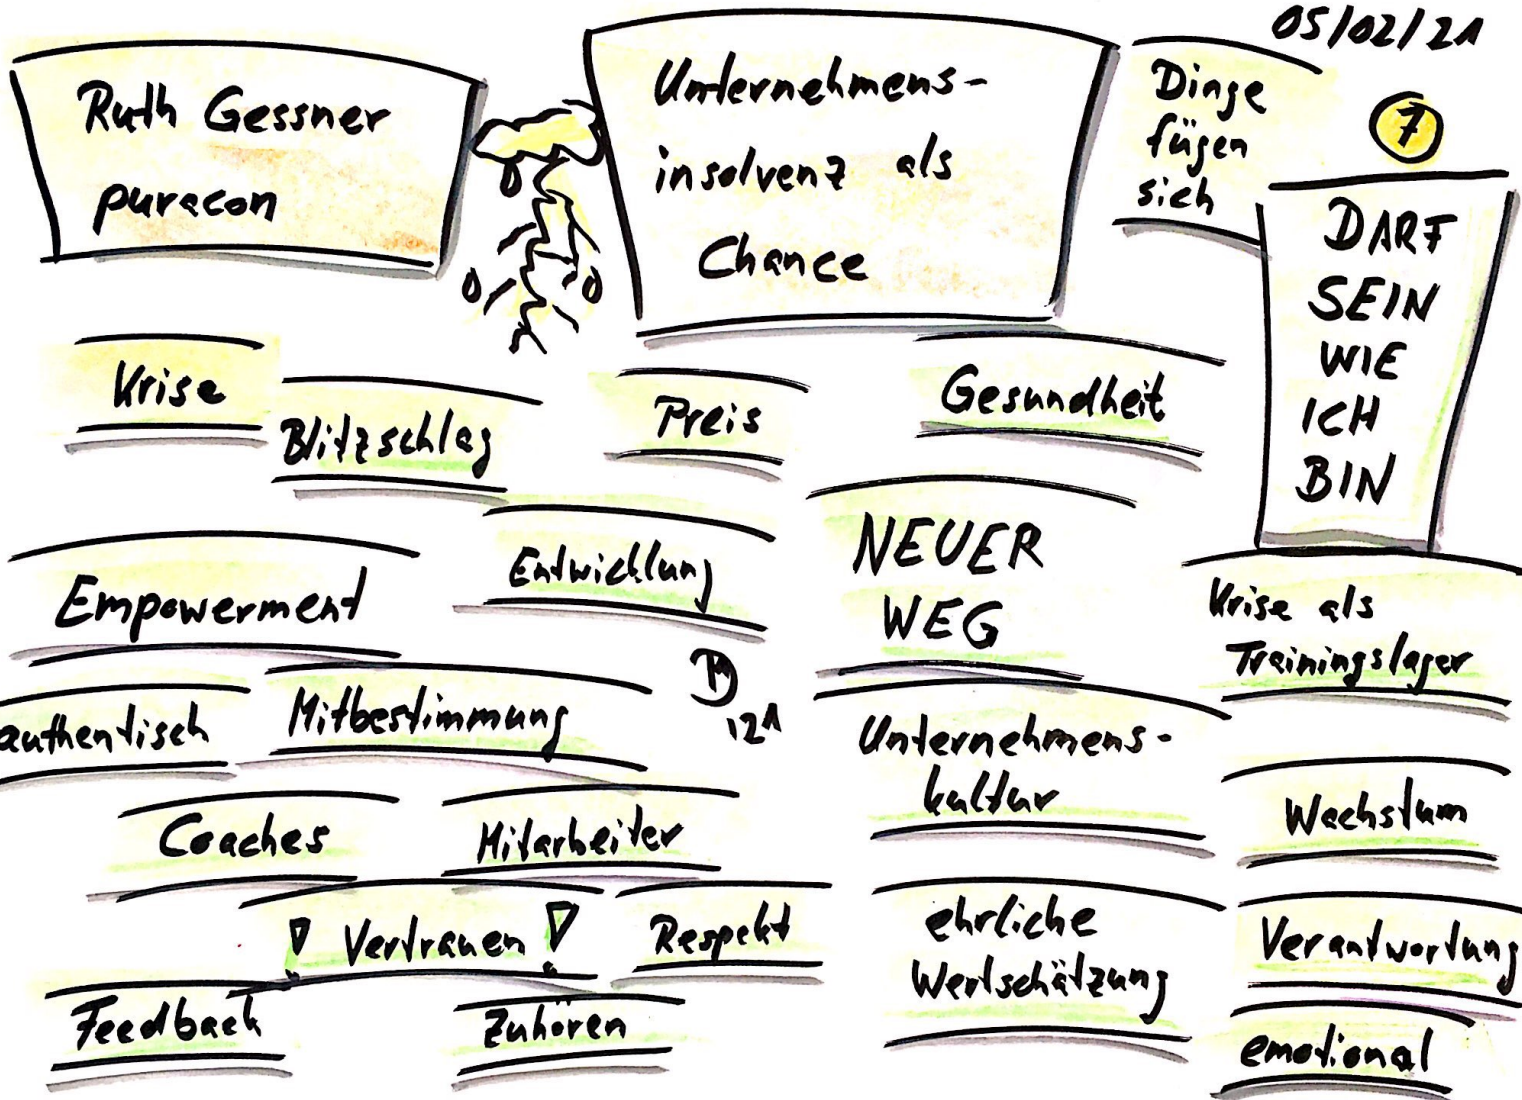 05/02/21
Ruth Gessner
puracon
Unternehmens-
insolvenz als
Chance
Dinge
fügen
sich
7
DARF
SEIN
WIE
ICH
BIN
Krise
Blitzschlag
Preis
Gesundheit
Empowerment
Entwicklung
NEUER
WEG
Krise als
Trainingslager
authentisch
Mitbestimmung
'21
Unternehmens-
kultur
Wachstum
Coaches
Mitarbeiter
! Vertrauen !
Respekt
ehrliche
Wertschätzung
Verantwortung
Feedback
Zuhören
emotional